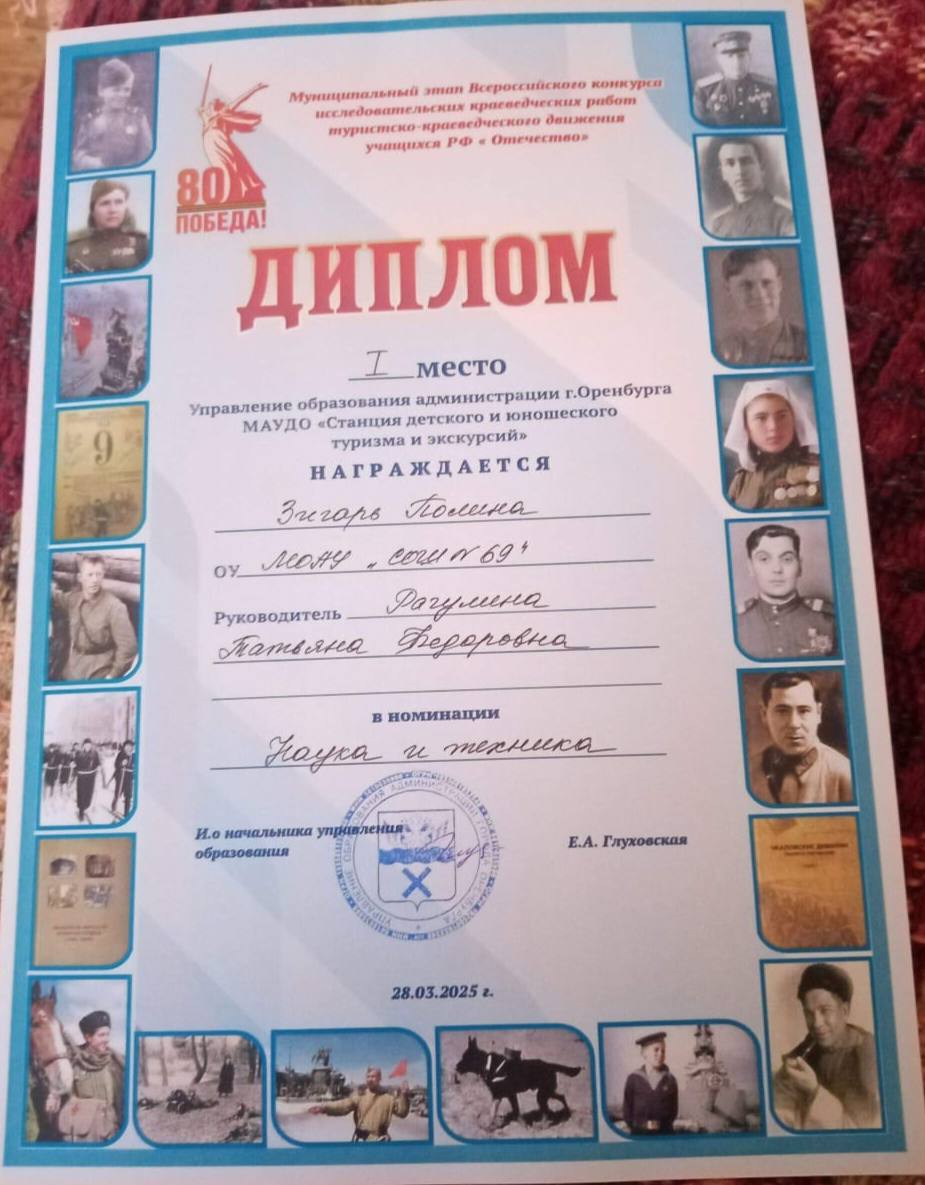 Муниципальный этап Всероссийского конкурса
исследовательских краеведческих работ
туристско-краеведческого движения
учащихся РФ « Отечество»
80
ПОБЕДА!
ДИПЛОМ
I место
Управление образования администрации г.Оренбурга
МАУДО «Станция детского и юношеского
туризма и экскурсий»
НАГРАЖДАЕТСЯ
Зигарь Полина
ОУ МОАУ „СОШ № 69"
Руководитель Рагулина
Татьяна Федоровна
в номинации
Наука и техника
И.о начальника управления
образования
Е.А. Глуховская
УПРАВЛЕНИЕ ОБРАЗОВАНИЯ АДМИНИСТРАЦИИ ГОРОДА ОРЕНБУРГА
28.03.2025 г.
9